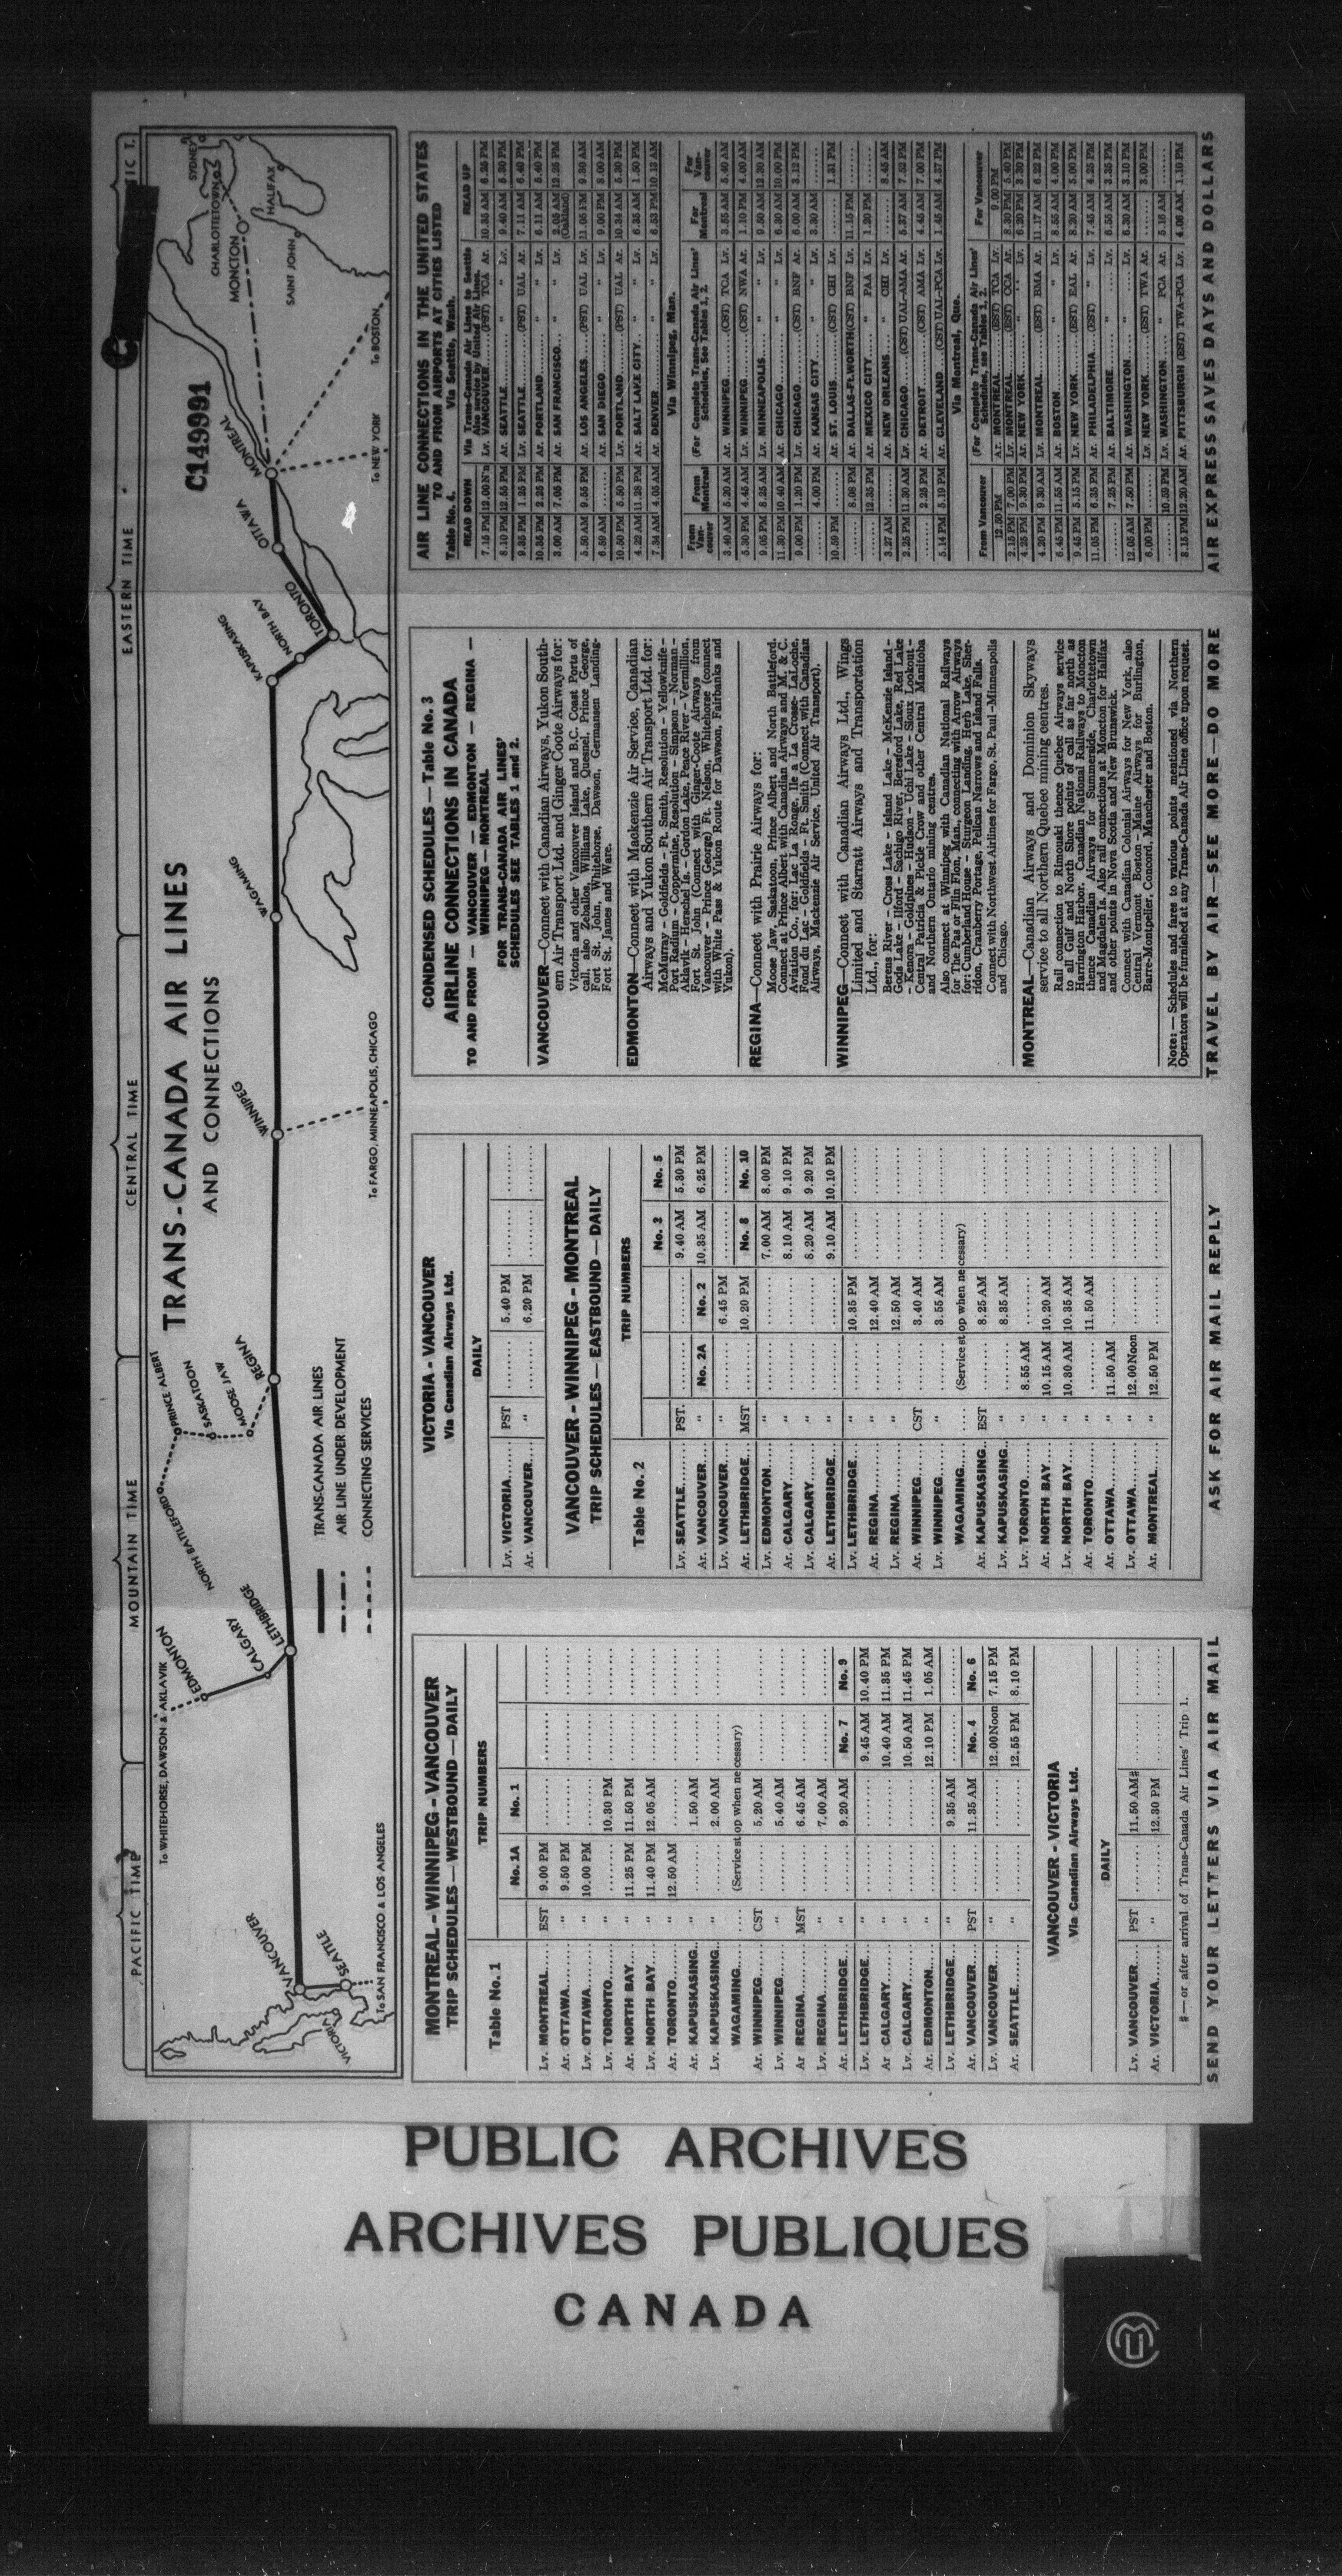 PACIFIC TIME
MOUNTAIN TIME
CENTRAL TIME
EASTERN TIME
TIC T.
TRANS-CANADA AIR LINES
AND CONNECTIONS
C149991
To WHITEHORSE, DAWSON & AKLAVIK
EDMONTON
CALGARY
LETHBRIDGE
NORTH BATTLEFORD
PRINCE ALBERT
SASKATOON
MOOSE JAW
REGINA
WINNIPEG
WAGAMING
KAPUSKASING
NORTH BAY
TORONTO
OTTAWA
MONTREAL
MONCTON
CHARLOTTETOWN
SYDNEY
HALIFAX
SAINT JOHN
VANCOUVER
SEATTLE
VICTORIA
To SAN FRANCISCO & LOS ANGELES
To FARGO, MINNEAPOLIS, CHICAGO
To NEW YORK
To BOSTON
TRANS-CANADA AIR LINES
AIR LINE UNDER DEVELOPMENT
CONNECTING SERVICES
MONTREAL - WINNIPEG - VANCOUVER
TRIP SCHEDULES — WESTBOUND — DAILY
Table No. 1
TRIP NUMBERS
No. 1A No. 1
Lv. MONTREAL..... EST 9.00 PM ........
Ar. OTTAWA....... " 9.50 PM ........
Lv. OTTAWA....... " 10.00 PM ........
Lv. TORONTO...... " ........ 10.30 PM
Ar. NORTH BAY.... " 11.25 PM 11.50 PM
Lv. NORTH BAY.... " 11.40 PM 12.05 AM
Ar. TORONTO...... " 12.50 AM ........
Ar. KAPUSKASING.. " ........ 1.50 AM
Lv. KAPUSKASING.. " ........ 2.00 AM
WAGAMING..... .... (Service stop when necessary)
Ar. WINNIPEG..... CST ........ 5.20 AM
Lv. WINNIPEG..... " ........ 5.40 AM
Ar REGINA........ MST ........ 6.45 AM
Lv. REGINA....... " ........ 7.00 AM
Ar. LETHBRIDGE... " ........ 9.20 AM No. 7 No. 9
Lv. LETHBRIDGE... " ........ ........ 9.45 AM 10.40 PM
Ar CALGARY....... " ........ ........ 10.40 AM 11.35 PM
Lv. CALGARY...... " ........ ........ 10.50 AM 11.45 PM
Ar. EDMONTON..... " ........ ........ 12.10 PM 1.05 AM
Lv. LETHBRIDGE... " ........ 9.35 AM ........ ........
Ar. VANCOUVER.... PST ........ 11.35 AM No. 4 No. 6
Lv. VANCOUVER.... " ........ ........ 12.00 Noon 7.15 PM
Ar. SEATTLE...... " ........ ........ 12.55 PM 8.10 PM
VANCOUVER - VICTORIA
Via Canadian Airways Ltd.
DAILY
Lv. VANCOUVER.... PST ........ 11.50 AM#
Ar. VICTORIA..... " ........ 12.30 PM
#— or after arrival of Trans-Canada Air Lines' Trip 1.
SEND YOUR LETTERS VIA AIR MAIL
VICTORIA - VANCOUVER
Via Canadian Airways Ltd.
DAILY
Lv. VICTORIA..... PST ........ 5.40 PM
Ar. VANCOUVER.... " ........ 6.20 PM
VANCOUVER - WINNIPEG - MONTREAL
TRIP SCHEDULES — EASTBOUND — DAILY
Table No. 2
TRIP NUMBERS
No. 3 No. 5
Lv. SEATTLE...... PST. ........ ........ 9.40 AM 5.30 PM
Ar. VANCOUVER.... " No. 2A No. 2 10.35 AM 6.25 PM
Lv. VANCOUVER.... " ........ 6.45 PM ........ ........
Ar. LETHBRIDGE... MST ........ 10.20 PM No. 8 No. 10
Lv. EDMONTON..... " ........ ........ 7.00 AM 8.00 PM
Ar. CALGARY...... " ........ ........ 8.10 AM 9.10 PM
Lv. CALGARY...... " ........ ........ 8.20 AM 9.20 PM
Ar. LETHBRIDGE... " ........ ........ 9.10 AM 10.10 PM
Lv. LETHBRIDGE... " ........ 10.35 PM
Ar. REGINA....... " ........ 12.40 AM
Lv. REGINA....... " ........ 12.50 AM
Ar. WINNIPEG..... CST ........ 3.40 AM
Lv. WINNIPEG..... " ........ 3.55 AM
WAGAMING..... .... (Service stop when necessary)
Ar. KAPUSKASING.. EST ........ 8.25 AM
Lv. KAPUSKASING.. " ........ 8.35 AM
Lv. TORONTO...... " 8.55 AM ........
Ar. NORTH BAY.... " 10.15 AM 10.20 AM
Lv. NORTH BAY.... " 10.30 AM 10.35 AM
Ar. TORONTO...... " ........ 11.50 AM
Ar. OTTAWA....... " 11.50 AM ........
Lv. OTTAWA....... " 12.00 Noon ........
Ar. MONTREAL..... " 12.50 PM ........
ASK FOR AIR MAIL REPLY
CONDENSED SCHEDULES — Table No. 3
AIRLINE CONNECTIONS IN CANADA
TO AND FROM — VANCOUVER — EDMONTON — REGINA —
WINNIPEG — MONTREAL
FOR TRANS-CANADA AIR LINES'
SCHEDULES SEE TABLES 1 and 2.
VANCOUVER—Connect with Canadian Airways, Yukon South-
ern Air Transport Ltd. and Ginger Coote Airways for:
Victoria and other Vancouver Island and B.C. Coast Ports of
call, also Zeballos, Williams Lake, Quesnel, Prince George,
Fort St. John, Whitehorse, Dawson, Germansen Landing-
Fort St. James and Ware.
EDMONTON—Connect with Mackenzie Air Service, Canadian
Airways and Yukon Southern Air Transport Ltd. for:
McMurray - Goldfields - Ft. Smith, Resolution - Yellowknife -
Port Radium - Coppermine, Resolution - Simpson - Norman -
Aklavik - Herschel Is. - Gordon Lake, Peace River - Vermillion,
Fort St. John (Connect with Ginger-Coote Airways from
Vancouver - Prince George) Ft. Nelson, Whitehorse (connect
with White Pass & Yukon Route for Dawson, Fairbanks and
Yukon).
REGINA—Connect with Prairie Airways for:
Moose Jaw, Saskatoon, Prince Albert and North Battleford.
Connect at Prince Albert with Canadian Airways and M. & C.
Aviation Co., for: Lac La Ronge, Ile a La Crosse- LaLoche,
Fond du Lac - Goldfields - Ft. Smith (Connect with Canadian
Airways, Mackenzie Air Service, United Air Transport).
WINNIPEG—Connect with Canadian Airways Ltd., Wings
Limited and Starratt Airways and Transportation
Ltd., for:
Berens River - Cross Lake - Island Lake - McKenzie Island -
Gods Lake - Ilford - Sachigo River, Beresford Lake, Red Lake
- Kenora - Goldpines - Hudson - Uchi Lake - Sioux Lookout -
Central Patricia & Pickle Crow and other Central Manitoba
and Northern Ontario mining centres.
Also connect at Winnipeg with Canadian National Railways
for The Pas or Flin Flon, Man., connecting with Arrow Airways
for: Cumberland House - Sturgeon Landing, Herb Lake, Sher-
ridon, Cranberry Portage, Pelican Narrows and Island Falls.
Connect with Northwest Airlines for Fargo, St. Paul-Minneapolis
and Chicago.
MONTREAL—Canadian Airways and Dominion Skyways
service to all Northern Quebec mining centres.
Rail connection to Rimouski thence Quebec Airways service
to all Gulf and North Shore points of call as far north as
Harrington Harbor. Canadian National Railways to Moncton
thence Canadian Airways for Summerside, Charlottetown
and Magdalen Is. Also rail connections at Moncton for Halifax
and other points in Nova Scotia and New Brunswick.
Connect with Canadian Colonial Airways for New York, also
Central Vermont Boston - Maine Airways for Burlington,
Barre-Montpelier, Concord, Manchester and Boston.
Note: — Schedules and fares to various points mentioned via Northern
Operators will be furnished at any Trans-Canada Air Lines office upon request.
TRAVEL BY AIR — SEE MORE — DO MORE
AIR LINE CONNECTIONS IN THE UNITED STATES
TO AND FROM AIRPORTS AT CITIES LISTED
Table No. 4. Via Seattle, Wash.
READ DOWN Via Trans-Canada Air Lines to Seattle READ UP
Also service by United Air Lines.
7.15 PM 12.00 N'n Lv. VANCOUVER.....(PST) TCA Ar. 10.35 AM 6.25 PM
8.10 PM 12.55 PM Ar. SEATTLE....... " Lv. 9.40 AM 5.30 PM
9.35 PM 1.25 PM Lv. SEATTLE.......(PST) UAL Ar. 7.11 AM 6.40 PM
10.35 PM 2.25 PM Ar. PORTLAND...... " Lv. 6.11 AM 5.40 PM
3.00 AM 7.05 PM Ar. SAN FRANCISCO... " Lv. 2.05 AM 12.25 PM
(Oakland)
5.50 AM 9.55 PM Ar. LOS ANGELES....(PST) UAL Lv. 11.05 PM 9.30 AM
6.59 AM ........ Ar. SAN DIEGO..... " Lv. 9.00 PM 8.00 AM
10.50 PM 5.50 PM Lv. PORTLAND......(PST) UAL Ar. 10.34 AM 5.30 PM
4.22 AM 11.28 PM Ar. SALT LAKE CITY... " Lv. 6.35 AM 1.50 PM
7.34 AM 4.05 AM Ar. DENVER........ " Lv. 6.53 PM 10.13 AM
Via Winnipeg, Man.
From Van-couver From Montreal (For Complete Trans-Canada Air Lines' Schedules, See Tables 1, 2. For Montreal For Van-couver
3.40 AM 5.20 AM Ar. WINNIPEG......(CST) TCA Lv. 3.55 AM 5.40 AM
5.30 PM 4.45 AM Lv. WINNIPEG......(CST) NWA Ar. 1.10 PM 4.00 AM
9.05 PM 8.25 AM Lv. MINNEAPOLIS... " Lv. 9.50 AM 12.30 AM
11.30 PM 10.40 AM Ar. CHICAGO....... " Lv. 6.30 AM 10.00 PM
9.00 PM 1.20 PM Lv. CHICAGO.......(CST) BNF Ar. 6.00 AM 3.12 PM
........ 4.00 PM Ar. KANSAS CITY... " Lv. 3.30 AM ........
10.59 PM ........ Ar. ST. LOUIS.....(CST) CHI Lv. ........ 1.31 PM
........ 8.08 PM Ar. DALLAS-Ft.WORTH(CST) BNF Lv. 11.15 PM ........
........ 12.35 PM Ar. MEXICO CITY... " PAA Lv. 1.20 PM ........
3.27 AM ........ Ar. NEW ORLEANS... CHI Lv. ........ 8.45 AM
2.25 PM 11.30 AM Lv. CHICAGO...(CST) UAL-AMA Ar. 5.37 AM 7.52 PM
........ 2.25 PM Ar. DETROIT.......(CST) AMA Lv. 4.45 AM 7.00 PM
5.14 PM 5.19 PM Ar. CLEVELAND...(CST) UAL-PCA Lv. 1.45 AM 4.37 PM
Via Montreal, Que.
From Vancouver (For Complete Trans-Canada Air Lines' Schedules, see Tables 1, 2. For Vancouver
12.50 PM Ar. MONTREAL......(EST) TCA Lv. 9.00 PM
2.15 PM 7.00 PM Lv. MONTREAL......(EST) CCA Ar. 8.30 PM 5.40 PM
4.25 PM 9.30 PM Ar. NEW YORK...... " Lv. 6.20 PM 3.30 PM
4.20 PM 9.30 AM Lv. MONTREAL......(EST) BMA Ar. 11.17 AM 6.22 PM
6.45 PM 11.55 AM Ar. BOSTON........ " Lv. 8.55 AM 4.00 PM
9.45 PM 5.15 PM Lv. NEW YORK......(EST) EAL Ar. 8.20 AM 5.00 PM
11.05 PM 6.35 PM Ar. PHILADELPHIA..(EST) " Lv. 7.45 AM 4.25 PM
........ 7.25 PM Ar. BALTIMORE..... " Lv. 6.55 AM 3.35 PM
12.05 AM 7.50 PM Ar. WASHINGTON.... " Lv. 6.30 AM 3.10 PM
8.00 PM ........ Lv. NEW YORK......(EST) TWA Ar. ........ 3.00 PM
........ 10.59 PM Lv. WASHINGTON.... " PCA Ar. 5.16 AM ........
8.15 PM 12.20 AM Ar. PITTSBURGH (EST) TWA-PCA Lv. 4.06 AM 1.10 PM
AIR EXPRESS SAVES DAYS AND DOLLARS
PUBLIC ARCHIVES
ARCHIVES PUBLIQUES
CANADA